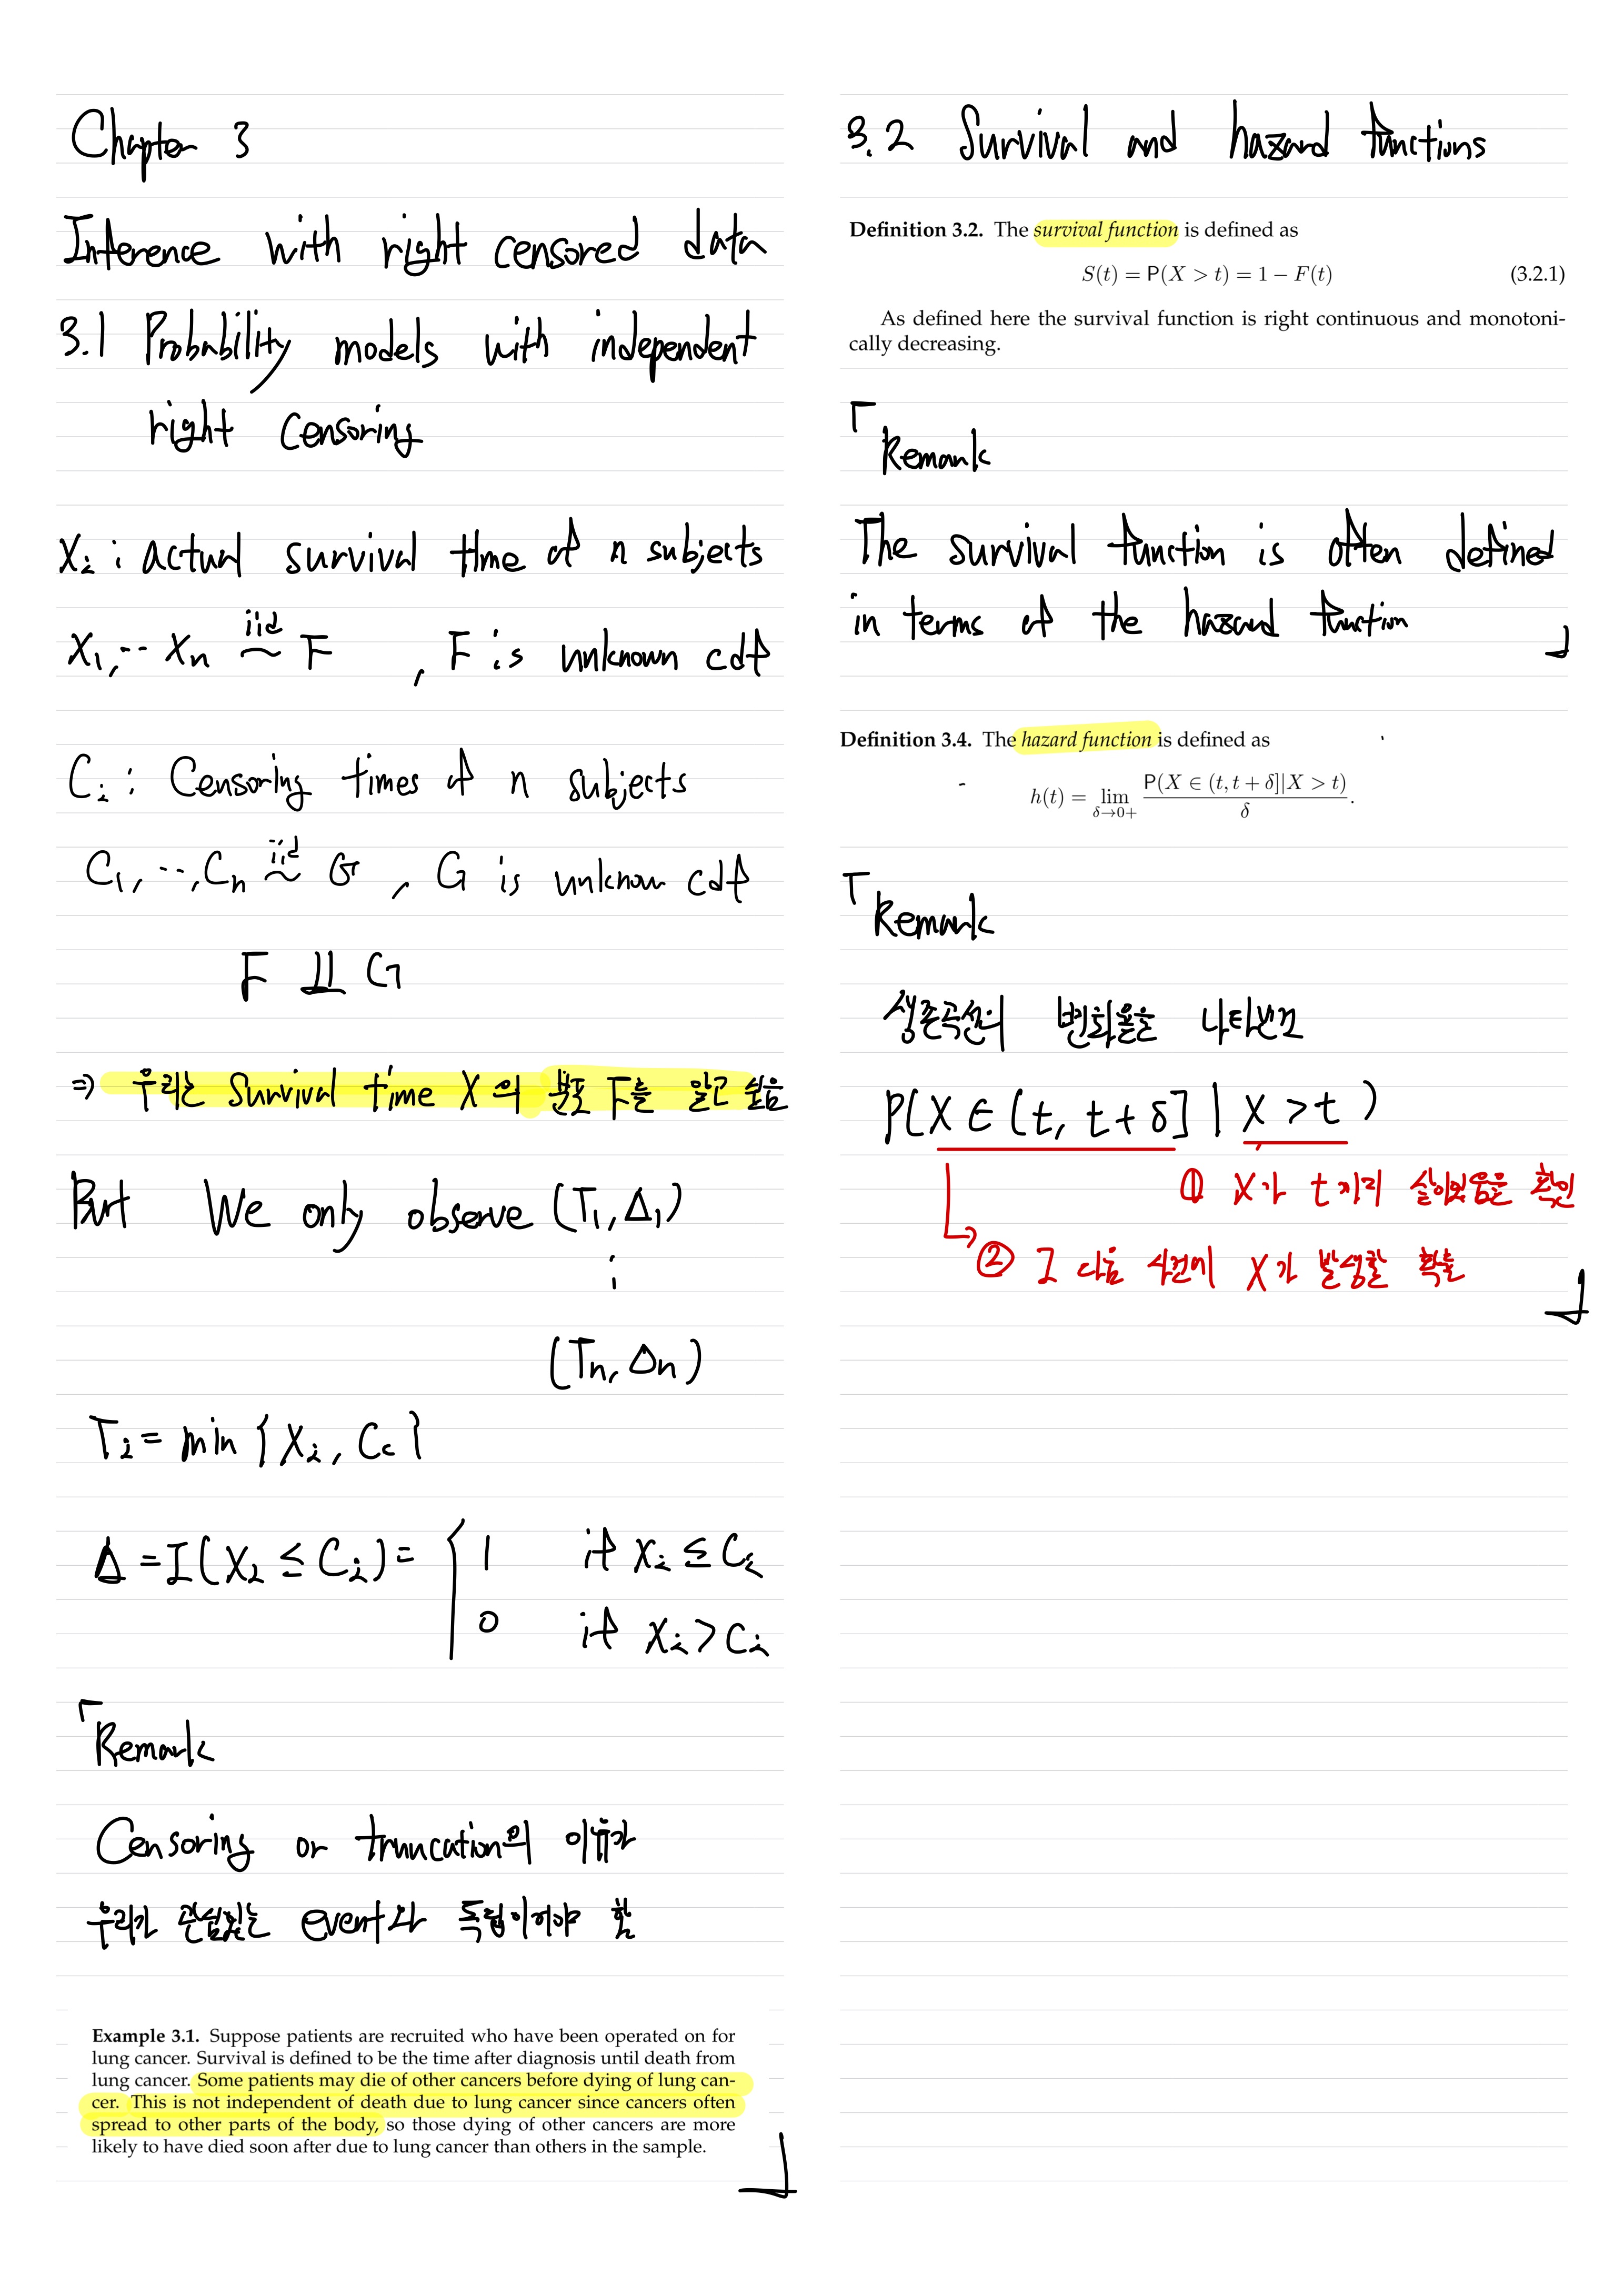 Chapter 3
Inference with right censored data
3.1 Probability models with independent
right censoring
Xi : actual survival time of n subjects
X1, ·· Xn iid ~ F , F is unknown cdf
Ci : Censoring times of n subjects
C1, ··, Cn iid ~ G , G is unknow cdf
F ⫫ G
⇒ 우리는 Survival time X의 분포 F를 알고 싶음
But We only observe (T1, Δ1)
⋮
(Tn, Δn)
Ti = min { Xi, Ci }
Δ = I(Xi ≤ Ci) = { 1 if Xi ≤ Ci
0 if Xi > Ci
「Remark
Censoring or truncation의 이유가
우리가 관심있는 event와 독립이어야 함
Example 3.1. Suppose patients are recruited who have been operated on for
lung cancer. Survival is defined to be the time after diagnosis until death from
lung cancer. Some patients may die of other cancers before dying of lung can-
cer. This is not independent of death due to lung cancer since cancers often
spread to other parts of the body, so those dying of other cancers are more
likely to have died soon after due to lung cancer than others in the sample.
」
3.2 Survival and hazard functions
Definition 3.2. The survival function is defined as
S(t) = P(X > t) = 1 − F(t) (3.2.1)
As defined here the survival function is right continuous and monotoni-
cally decreasing.
「Remark
The survival function is often defined
in terms of the hazard function
」
Definition 3.4. The hazard function is defined as
h(t) = lim δ→0+ P(X ∈ (t, t + δ]|X > t) / δ .
「Remark
생존곡선의 변화율을 나타낸것
P(X ∈ (t, t + δ] | X > t )
① X가 t까지 살아있음을 확인
② 그 다음 사건에 X가 발생할 확률
」